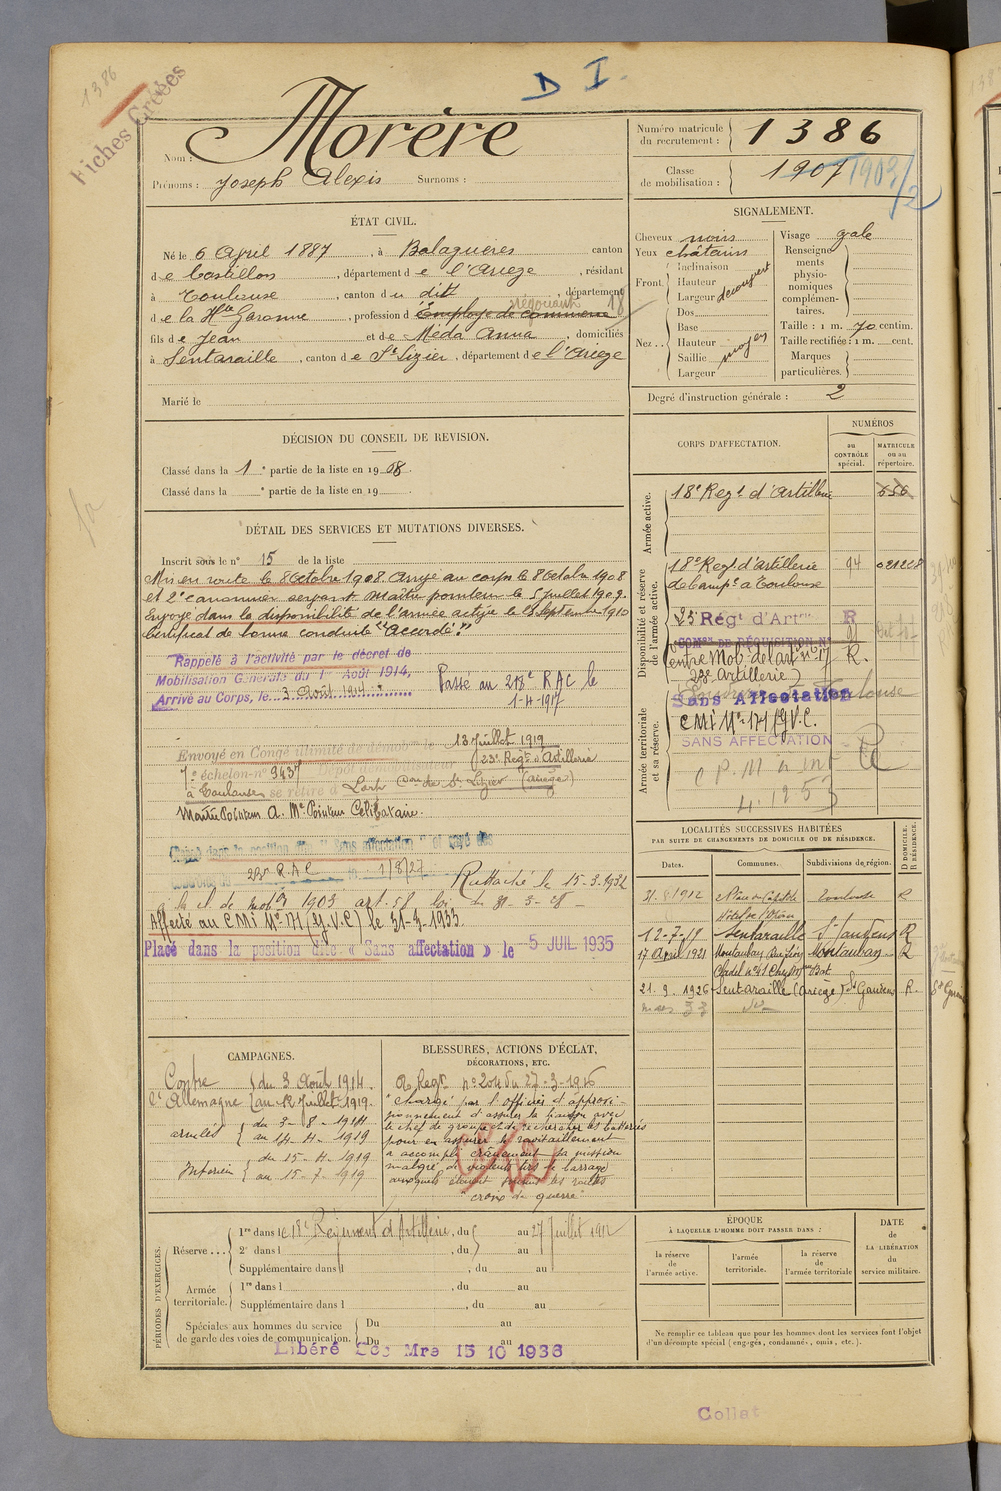 1386
Fiches Créées
D I.
Nom : Morère
Prénoms : Joseph Alexis Surnoms :
Numéro matricule du recrutement : 1386
Classe de mobilisation : 1907 1903/2
ÉTAT CIVIL.
Né le 6 Avril 1887, à Balaguères canton
de Castillon, département de l'Ariège, résidant
à Toulouse, canton du dit, département
négociant 18
de la Hte Garonne, profession d'Employé de commerce
fils de Jean et de Méda Anna, domiciliés
à Sentaraille, canton de St Lizier, département de l'Ariège
Marié le
SIGNALEMENT.
Cheveux noirs
Yeux châtains
Front. Inclinaison
Hauteur
Largeur découvert
Nez. Dos
Base
Hauteur
Saillie moyen
Largeur
Visage ovale
Renseignements physionomiques complémentaires.
Taille : 1 m. 70 centim.
Taille rectifiée : 1 m. cent.
Marques particulières.
Degré d'instruction générale : 2
DÉCISION DU CONSEIL DE REVISION.
Classé dans la 1e partie de la liste en 1908.
Classé dans la e partie de la liste en 19
DÉTAIL DES SERVICES ET MUTATIONS DIVERSES.
Inscrit sous le n° 15 de la liste
Mis en route le 8 Octobre 1908. Arrivé au corps le 8 Octobre 1908
et 2e canonnier servant. Maître pointeur le 5 juillet 1909.
Envoyé dans la disponibilité de l'armée active le 25 Septembre 1910
Certificat de bonne conduite "Accordé".
Rappelé à l'activité par le décret de
Mobilisation Générale du 1er Août 1914,
Arrivé au Corps, le 3 Août 1914
Passé au 218e RAC le
1-4-1917
Envoyé en Congé illimité de démobon le 13 Juillet 1919
7e échelon - n° 3437 Dépôt démobilisateur 23e Regt d'Artillerie
à Toulouse se retire à Lorp Con de St Lizier (Ariège)
Maître Pointeur A. Me Pointeur Célibataire.
Placé dans la position dite "Sans affectation"
23e R.A.C. 1/8/27
Rattaché le 15-3-1932
à la cl. de mobon 1903 art. 58 loi du 31-3-28
Affecté au CMI N° 171 (G.V.C) le 31-3-1933
Placé dans la position dite « Sans affectation » le -5 JUIL 1935
CORPS D'AFFECTATION.
NUMÉROS
au CONTRÔLE spécial.
MATRICULE ou au répertoire.
Armée active.
18e Regt d'Artillerie 656
Disponibilité et réserve de l'armée active.
18e Regt d'artillerie 94
de campe à Toulouse
23 Régt d'Artie R
COMon DE RÉQUISITION N°
Centre Mob. de l'art n° 17 R.
(23e Artillerie)
Armée territoriale et sa réserve.
Sans Affectation
CMI N° 171 (G.V.C.
SANS AFFECTATION
LOCALITÉS SUCCESSIVES HABITÉES
PAR SUITE DE CHANGEMENTS DE DOMICILE OU DE RÉSIDENCE.
Dates. Communes. Subdivisions de région. D DOMICILE. R RÉSIDENCE.
1912 Place du Capitole Toulouse R
12-7-19 Sentaraille St Gaudens R
17 Avril 1921 Montauban Montauban R
21. 9. 1926 Sentaraille (Ariège) St Gaudens R.
CAMPAGNES.
Contre du 3 Août 1914.
l'Allemagne au 12 Juillet 1919.
armées du 3-8-1914
au 14-4-1919
Intérieur du 15-4-1919
au 15-7-1919
BLESSURES, ACTIONS D'ÉCLAT,
DÉCORATIONS, ETC.
O. Regt n° 204 du 27-3-1916
"chargé par l'officier d'approvi-
sionnement d'assurer la liaison avec
le chef de groupe et de rechercher les batteries
pour en assurer le ravitaillement
a accompli crânement sa mission
malgré de violents tirs de barrage
auxquels étaient soumis les routes
"croix de guerre"
PÉRIODES D'EXERCICES.
Réserve 1re dans le 18e Régiment d'Artillerie, du au 27 Juillet 1912
2e dans l , du au
Supplémentaire dans l , du au
Armée territoriale. 1re dans l , du au
Supplémentaire dans l , du au
Spéciales aux hommes du service Du au
de garde des voies de communication. Du au
Libéré Mre 15 10 1936
ÉPOQUE
À LAQUELLE L'HOMME DOIT PASSER DANS :
la réserve de l'armée active.
l'armée territoriale.
la réserve de l'armée territoriale
DATE de LA LIBÉRATION du service militaire.
Ne remplir ce tableau que pour les hommes dont les services font l'objet
d'un décompte spécial (engagés, condamnés, omis, etc.).
Collat